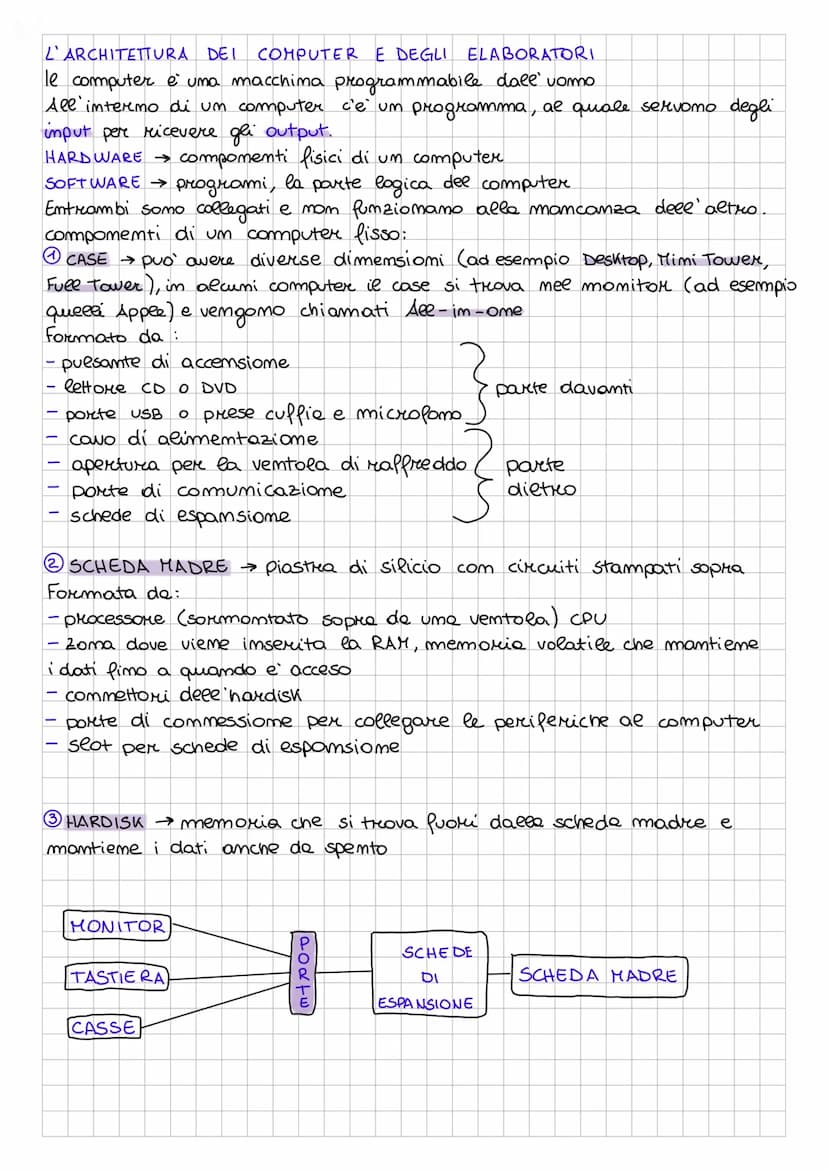 L'ARCHITETTURA DEI COMPUTER E DEGLI ELABORATORI
Il computer è una macchina programmabile dall'uomo
All'interno di un computer c'è un programma, al quale servono degli
input per ricevere gli output.
HARDWARE → componenti fisici di un computer
SOFTWARE → programmi, la parte logica del computer
Entrambi sono collegati e non funzionano alla mancanza dell'altro.
componenti di un computer fisso:
① CASE → può avere diverse dimensioni (ad esempio Desktop, Mini Tower,
Full Tower), in alcuni computer il case si trova nel monitor (ad esempio
quelli Apple) e vengono chiamati All-in-one
Formato da :
- pulsante di accensione
- lettore CD o DVD
parte davanti
- porte USB o prese cuffie e microfono
- cavo di alimentazione
- apertura per la ventola di raffreddo
- porte di comunicazione
- schede di espansione
parte
dietro
② SCHEDA MADRE → piastra di silicio con circuiti stampati sopra
Formata da:
- processore (sormontato sopra da una ventola) CPU
- zona dove viene inserita la RAM, memoria volatile che mantiene
i dati fino a quando è acceso
- connettori dell'hardisk
- porte di connessione per collegare le periferiche al computer
- slot per schede di espansione
③ HARDISK → memoria che si trova fuori dalla scheda madre e
mantiene i dati anche da spento
MONITOR
TASTIERA
CASSE
PORTE
SCHEDE
DI
ESPANSIONE
SCHEDA MADRE